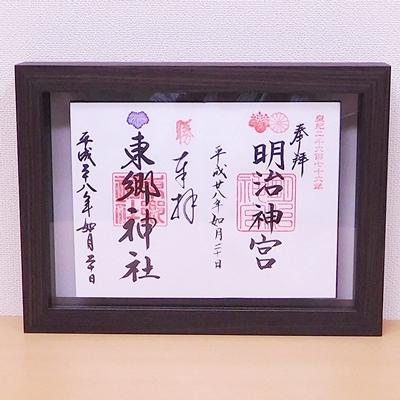 皇紀二千六百七十六年
奉拝
明治神宮
平成廿八年如月二十日
勝
奉拝
東郷神社
平成廿八年如月二十日